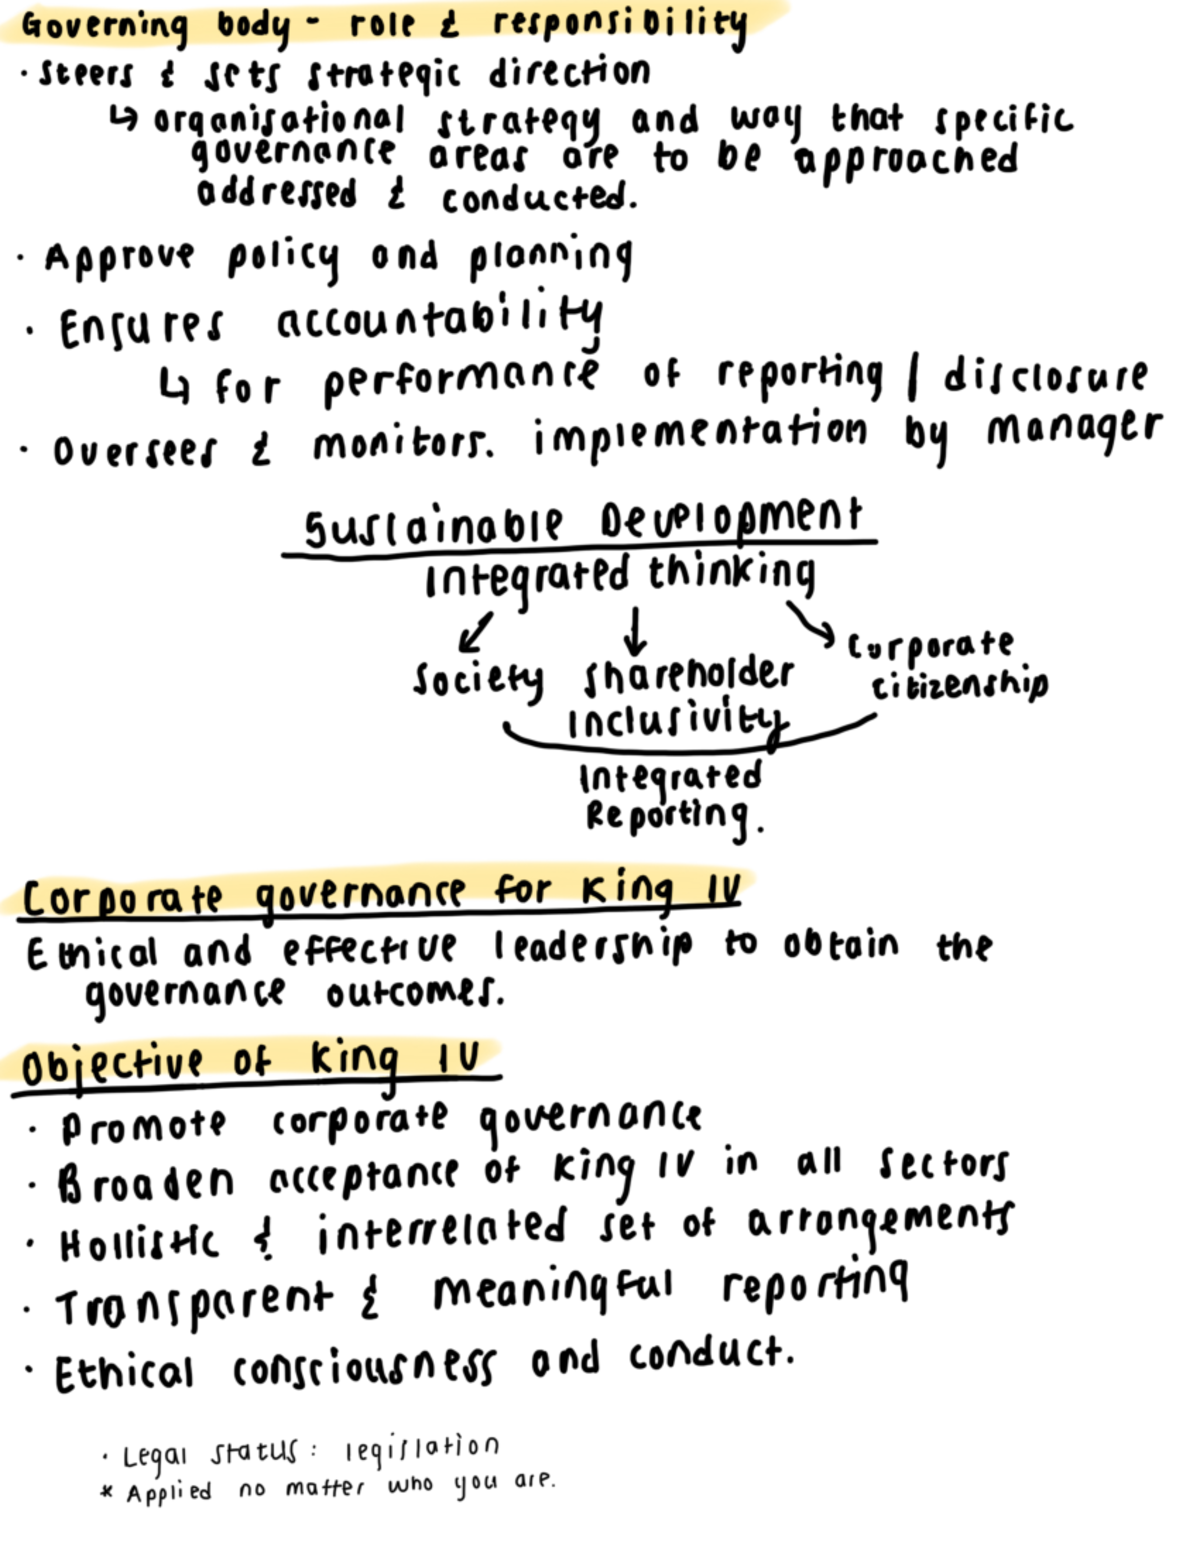 Governing body - role & responsibility
· Steers & sets strategic direction
↳ organisational strategy and way that specific
governance areas are to be approached
addressed & conducted.
· Approve policy and planning
· Ensures accountability
↳ for performance of reporting / disclosure
· Oversees & monitors. implementation by manager
Sustainable Development
Integrated thinking
↙ ↓ ↘
Society shareholder corporate
Inclusivity citizenship
Integrated
Reporting.
Corporate governance for King IV
Ethical and effective leadership to obtain the
governance outcomes.
Objective of King IV
· Promote corporate governance
· Broaden acceptance of King IV in all sectors
· Hollistic & interrelated set of arrangements
· Transparent & meaningful reporting
· Ethical consciousness and conduct.
· Legal status: legislation
* Applied no matter who you are.